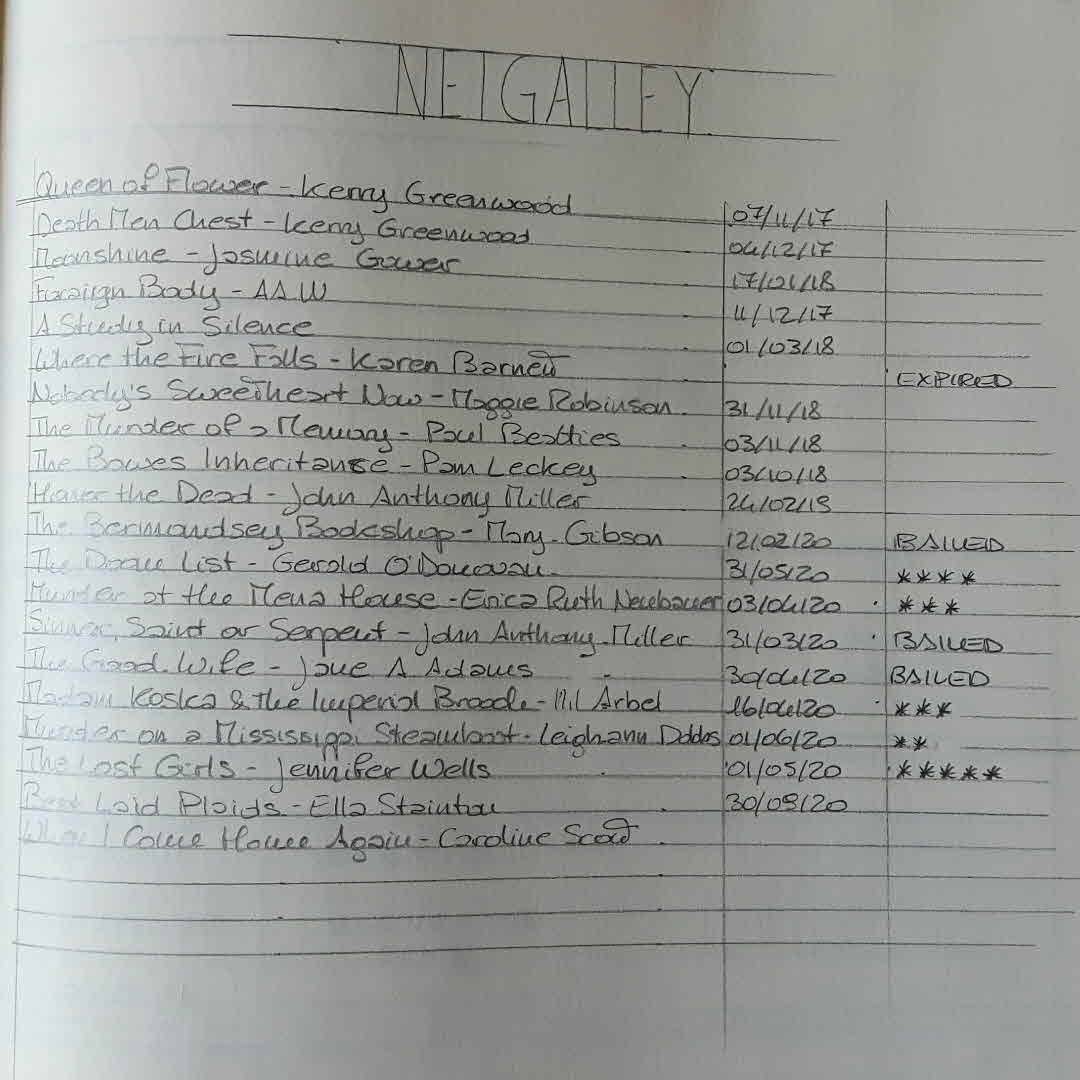 NETGALLEY
Queen of Flower - Kerry Greenwood 07/11/17
Death Men Chest - Kerry Greenwood 04/12/17
Moonshine - Jasmine Gower 17/01/18
Foreign Body - AAW 11/12/17
A Study in Silence 01/03/18
Where the Fire Falls - Karen Barnett EXPIRED
Nobody's Sweetheart Now - Maggie Robinson 31/11/18
The Murder of a Memory - Paul Beatties 03/11/18
The Bowes Inheritanse - Pam Leckey 03/10/18
Honor the Dead - John Anthony Miller 24/02/19
The Bermondsey Bookshop - Mary Gibson 12/02/20 BAILED
The Doom List - Gerald O'Donovan 31/05/20 ****
Murder at the Mena House - Erica Ruth Neubauer 03/04/20 ***
Sinner, Saint or Serpent - John Anthony Miller 31/03/20 BAILED
The Good Wife - Jane A Adams 30/04/20 BAILED
Madam Koska & the Imperial Brooch - Ilil Arbel 16/04/20 ***
Murder on a Mississippi Steamboat - Leighann Dobbs 01/06/20 **
The Lost Girls - Jennifer Wells 01/05/20 *****
Best Laid Plaids - Ella Stainton 30/09/20
When I Come Home Again - Caroline Scott